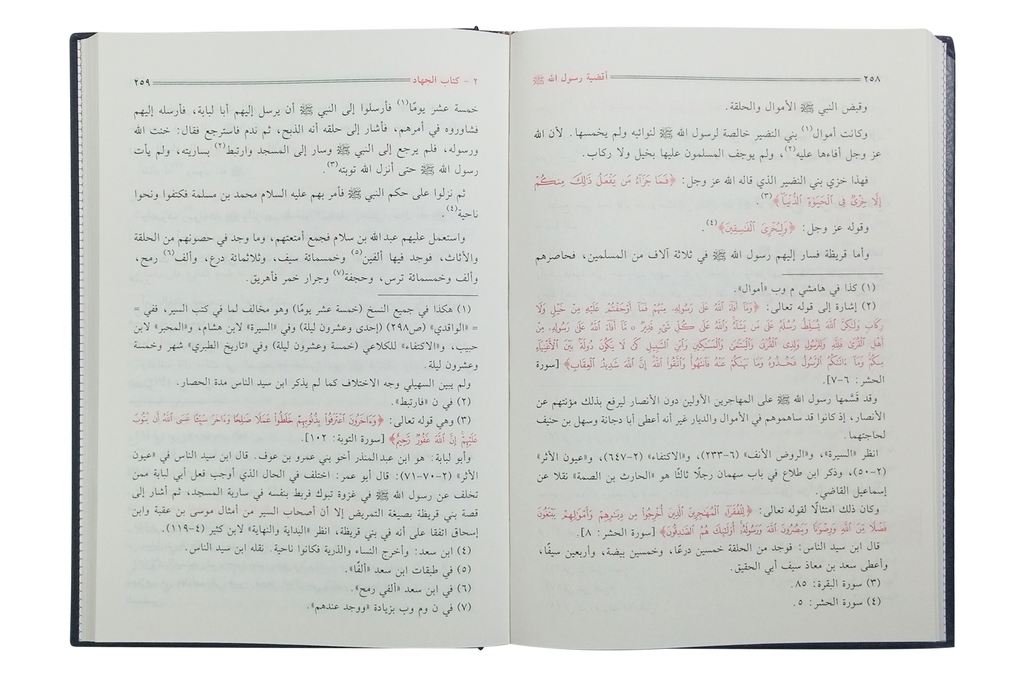 ٢٥٨ أقضية رسول الله ﷺ
وقبض النبي ﷺ الأموال والحلقة.
وكانت أموال(١) بني النضير خالصة لرسول الله ﷺ لنوائبه ولم يخمسها. لأن الله
عز وجل أفاءها عليه(٢)، ولم يوجف المسلمون عليها بخيل ولا ركاب.
فهذا خزي بني النضير الذي قاله الله عز وجل: ﴿فَمَا جَزَآءُ مَن يَفْعَلُ ذَٰلِكَ مِنكُمْ
إِلَّا خِزْىٌ فِى ٱلْحَيَوٰةِ ٱلدُّنْيَا﴾(٣).
وقوله عز وجل: ﴿وَلِيُخْزِىَ ٱلْفَٰسِقِينَ﴾(٤).
وأما قريظة فسار إليهم رسول الله ﷺ في ثلاثة آلاف من المسلمين، فحاصرهم
(١) كذا في هامشي م وب «أموال».
(٢) إشارة إلى قوله تعالى: ﴿وَمَآ أَفَآءَ ٱللَّهُ عَلَىٰ رَسُولِهِۦ مِنْهُمْ فَمَآ أَوْجَفْتُمْ عَلَيْهِ مِنْ خَيْلٍ وَلَا
رِكَابٍ وَلَٰكِنَّ ٱللَّهَ يُسَلِّطُ رُسُلَهُۥ عَلَىٰ مَن يَشَآءُ وَٱللَّهُ عَلَىٰ كُلِّ شَىْءٍ قَدِيرٌ * مَّآ أَفَآءَ ٱللَّهُ عَلَىٰ رَسُولِهِۦ مِنْ
أَهْلِ ٱلْقُرَىٰ فَلِلَّهِ وَلِلرَّسُولِ وَلِذِى ٱلْقُرْبَىٰ وَٱلْيَتَٰمَىٰ وَٱلْمَسَٰكِينِ وَٱبْنِ ٱلسَّبِيلِ كَىْ لَا يَكُونَ دُولَةًۢ بَيْنَ ٱلْأَغْنِيَآءِ
مِنكُمْ وَمَآ ءَاتَىٰكُمُ ٱلرَّسُولُ فَخُذُوهُ وَمَا نَهَىٰكُمْ عَنْهُ فَٱنتَهُوا۟ وَٱتَّقُوا۟ ٱللَّهَ إِنَّ ٱللَّهَ شَدِيدُ ٱلْعِقَابِ﴾ [سورة
الحشر: ٦-٧].
وقد قسَّمها رسول الله ﷺ على المهاجرين الأولين دون الأنصار ليرفع بذلك مؤنتهم عن
الأنصار، إذ كانوا قد ساهموهم في الأموال والديار غير أنه أعطى أبا دجانة وسهل بن حنيف
لحاجتهما.
انظر «السيرة»، و«الروض الأنف» (٦-٢٣٣)، و«الاكتفاء» (٢-٦٤٧)، و«عيون الأثر»
(٢-٥٠)، وذكر ابن طلاع في باب سهمان رجلًا ثالثًا هو «الحارث بن الصمة» نقلا عن
إسماعيل القاضي.
وكان ذلك امتثالًا لقوله تعالى: ﴿لِلْفُقَرَآءِ ٱلْمُهَٰجِرِينَ ٱلَّذِينَ أُخْرِجُوا۟ مِن دِيَٰرِهِمْ وَأَمْوَٰلِهِمْ يَبْتَغُونَ
فَضْلًا مِّنَ ٱللَّهِ وَرِضْوَٰنًا وَيَنصُرُونَ ٱللَّهَ وَرَسُولَهُۥٓ أُو۟لَٰٓئِكَ هُمُ ٱلصَّٰدِقُونَ﴾ [سورة الحشر: ٨].
قال ابن سيد الناس: فوجد من الحلقة خمسين درعًا، وخمسين بيضة، وأربعين سيفًا،
وأعطى سعد بن معاذ سيف أبي الحقيق.
(٣) سورة البقرة: ٨٥.
(٤) سورة الحشر: ٥.
٢ - كتاب الجهاد ٢٥٩
خمسة عشر يومًا(١) فأرسلوا إلى النبي ﷺ أن يرسل إليهم أبا لبابة، فأرسله إليهم
فشاوروه في أمرهم، فأشار إلى حلقه أنه الذبح، ثم ندم فاسترجع فقال: خنت الله
ورسوله، فلم يرجع إلى النبي ﷺ وسار إلى المسجد وارتبط(٢) بساريته، ولم يأت
رسول الله ﷺ حتى أنزل الله توبته(٣).
ثم نزلوا على حكم النبي ﷺ فأمر بهم عليه السلام محمد بن مسلمة فكتفوا ونحوا
ناحية(٤).
واستعمل عليهم عبد الله بن سلام فجمع أمتعتهم، وما وجد في حصونهم من الحلقة
والأثاث، فوجد فيها ألفين(٥) وخمسمائة سيف، وثلاثمائة درع، وألف(٦) رمح،
وألف وخمسمائة ترس، وحجفة(٧) وجرار خمر فأهريق.
(١) هكذا في جميع النسخ (خمسة عشر يومًا) وهو مخالف لما في كتب السير، ففي =
= «الواقدي» (ص٢٩٨) (إحدى وعشرون ليلة) وفي «السيرة» لابن هشام، و«المحبر» لابن
حبيب، و«الاكتفاء» للكلاعي (خمسة وعشرون ليلة) وفي «تاريخ الطبري» شهر وخمسة
وعشرون ليلة.
ولم يبين السهيلي وجه الاختلاف كما لم يذكر ابن سيد الناس مدة الحصار.
(٢) في ن «فارتبط».
(٣) وهي قوله تعالى: ﴿وَءَاخَرُونَ ٱعْتَرَفُوا۟ بِذُنُوبِهِمْ خَلَطُوا۟ عَمَلًا صَٰلِحًا وَءَاخَرَ سَيِّئًا عَسَى ٱللَّهُ أَن يَتُوبَ
عَلَيْهِمْ إِنَّ ٱللَّهَ غَفُورٌ رَّحِيمٌ﴾ [سورة التوبة: ١٠٢].
وأبو لبابة: هو ابن عبد المنذر أخو بني عمرو بن عوف. قال ابن سيد الناس في «عيون
الأثر» (٢-٧٠-٧١): قال أبو عمر: اختلف في الحال الذي أوجب فعل أبي لبابة ممن
تخلف عن رسول الله ﷺ في غزوة تبوك فربط بنفسه في سارية المسجد، ثم أشار إلى
قصة بني قريظة بصيغة التمريض إلا أن أصحاب السير من أمثال موسى بن عقبة وابن
إسحاق اتفقا على أنه في بني قريظة، انظر «البداية والنهاية» لابن كثير (٤-١١٩).
(٤) ابن سعد: وأخرج النساء والذرية فكانوا ناحية. نقله ابن سيد الناس.
(٥) في طبقات ابن سعد «ألفًا».
(٦) في ابن سعد «ألفي رمح».
(٧) في ن وم وب بزيادة «ووجد عندهم».